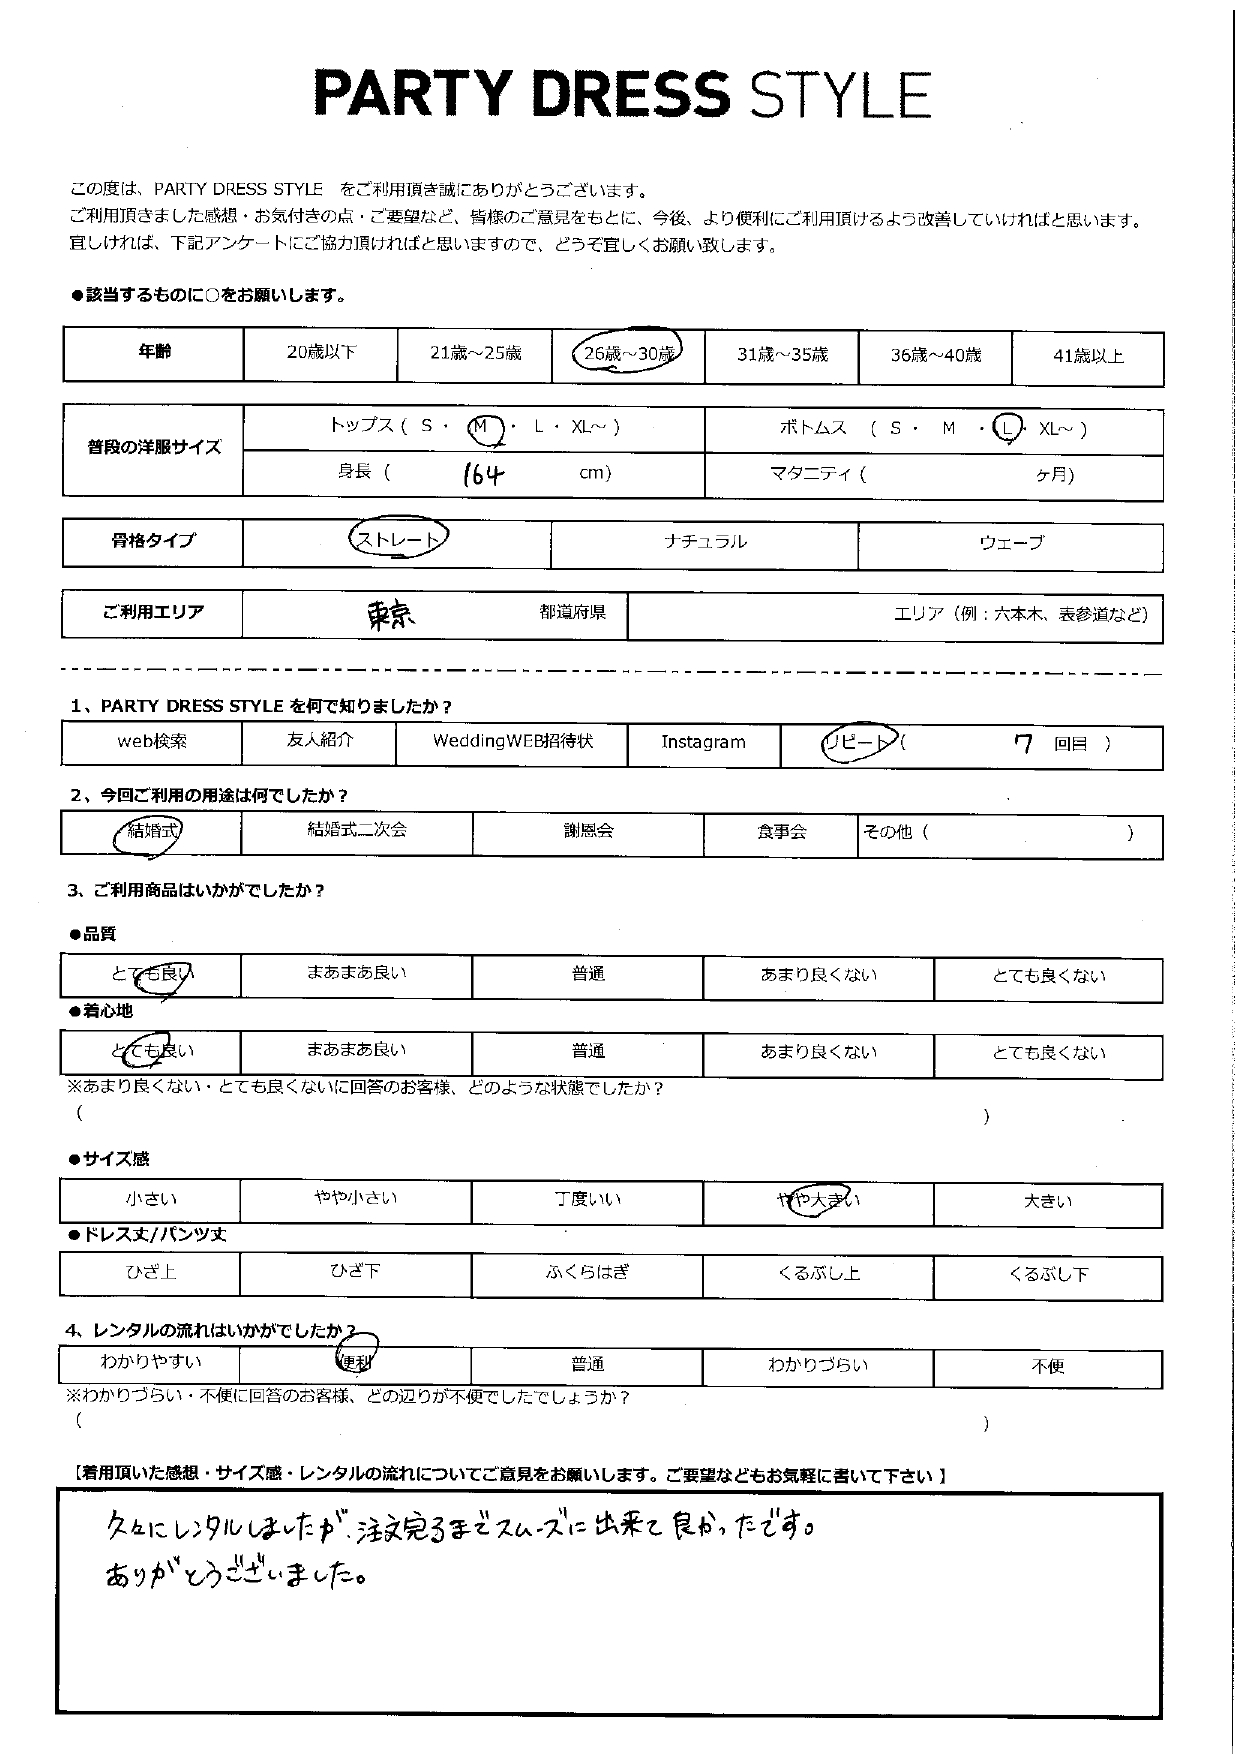 PARTY DRESS STYLE
この度は、PARTY DRESS STYLE をご利用頂き誠にありがとうございます。
ご利用頂きました感想・お気付きの点・ご要望など、皆様のご意見をもとに、今後、より便利にご利用頂けるよう改善していければと思います。
宜しければ、下記アンケートにご協力頂ければと思いますので、どうぞ宜しくお願い致します。
●該当するものに○をお願いします。
年齢 20歳以下 21歳～25歳 26歳～30歳 31歳～35歳 36歳～40歳 41歳以上
普段の洋服サイズ トップス ( S ・ M ・ L ・ XL～ ) ボトムス ( S ・ M ・ L ・ XL～ )
身長 ( 164 cm) マタニティ ( ヶ月)
骨格タイプ ストレート ナチュラル ウェーブ
ご利用エリア 東京 都道府県 エリア（例：六本木、表参道など）
1、PARTY DRESS STYLE を何で知りましたか？
web検索 友人紹介 WeddingWEB招待状 Instagram リピート ( 7 回目 )
2、今回ご利用の用途は何でしたか？
結婚式 結婚式二次会 謝恩会 食事会 その他 ( )
3、ご利用商品はいかがでしたか？
●品質
とても良い まあまあ良い 普通 あまり良くない とても良くない
●着心地
とても良い まあまあ良い 普通 あまり良くない とても良くない
※あまり良くない・とても良くないに回答のお客様、どのような状態でしたか？
( )
●サイズ感
小さい やや小さい 丁度いい やや大きい 大きい
●ドレス丈/パンツ丈
ひざ上 ひざ下 ふくらはぎ くるぶし上 くるぶし下
4、レンタルの流れはいかがでしたか？
わかりやすい 便利 普通 わかりづらい 不便
※わかりづらい・不便に回答のお客様、どの辺りが不便でしたでしょうか？
( )
【着用頂いた感想・サイズ感・レンタルの流れについてご意見をお願いします。ご要望などもお気軽に書いて下さい】
久々にレンタルしましたが、注文完るまでスムーズに出来て良かったです。
ありがとうございました。